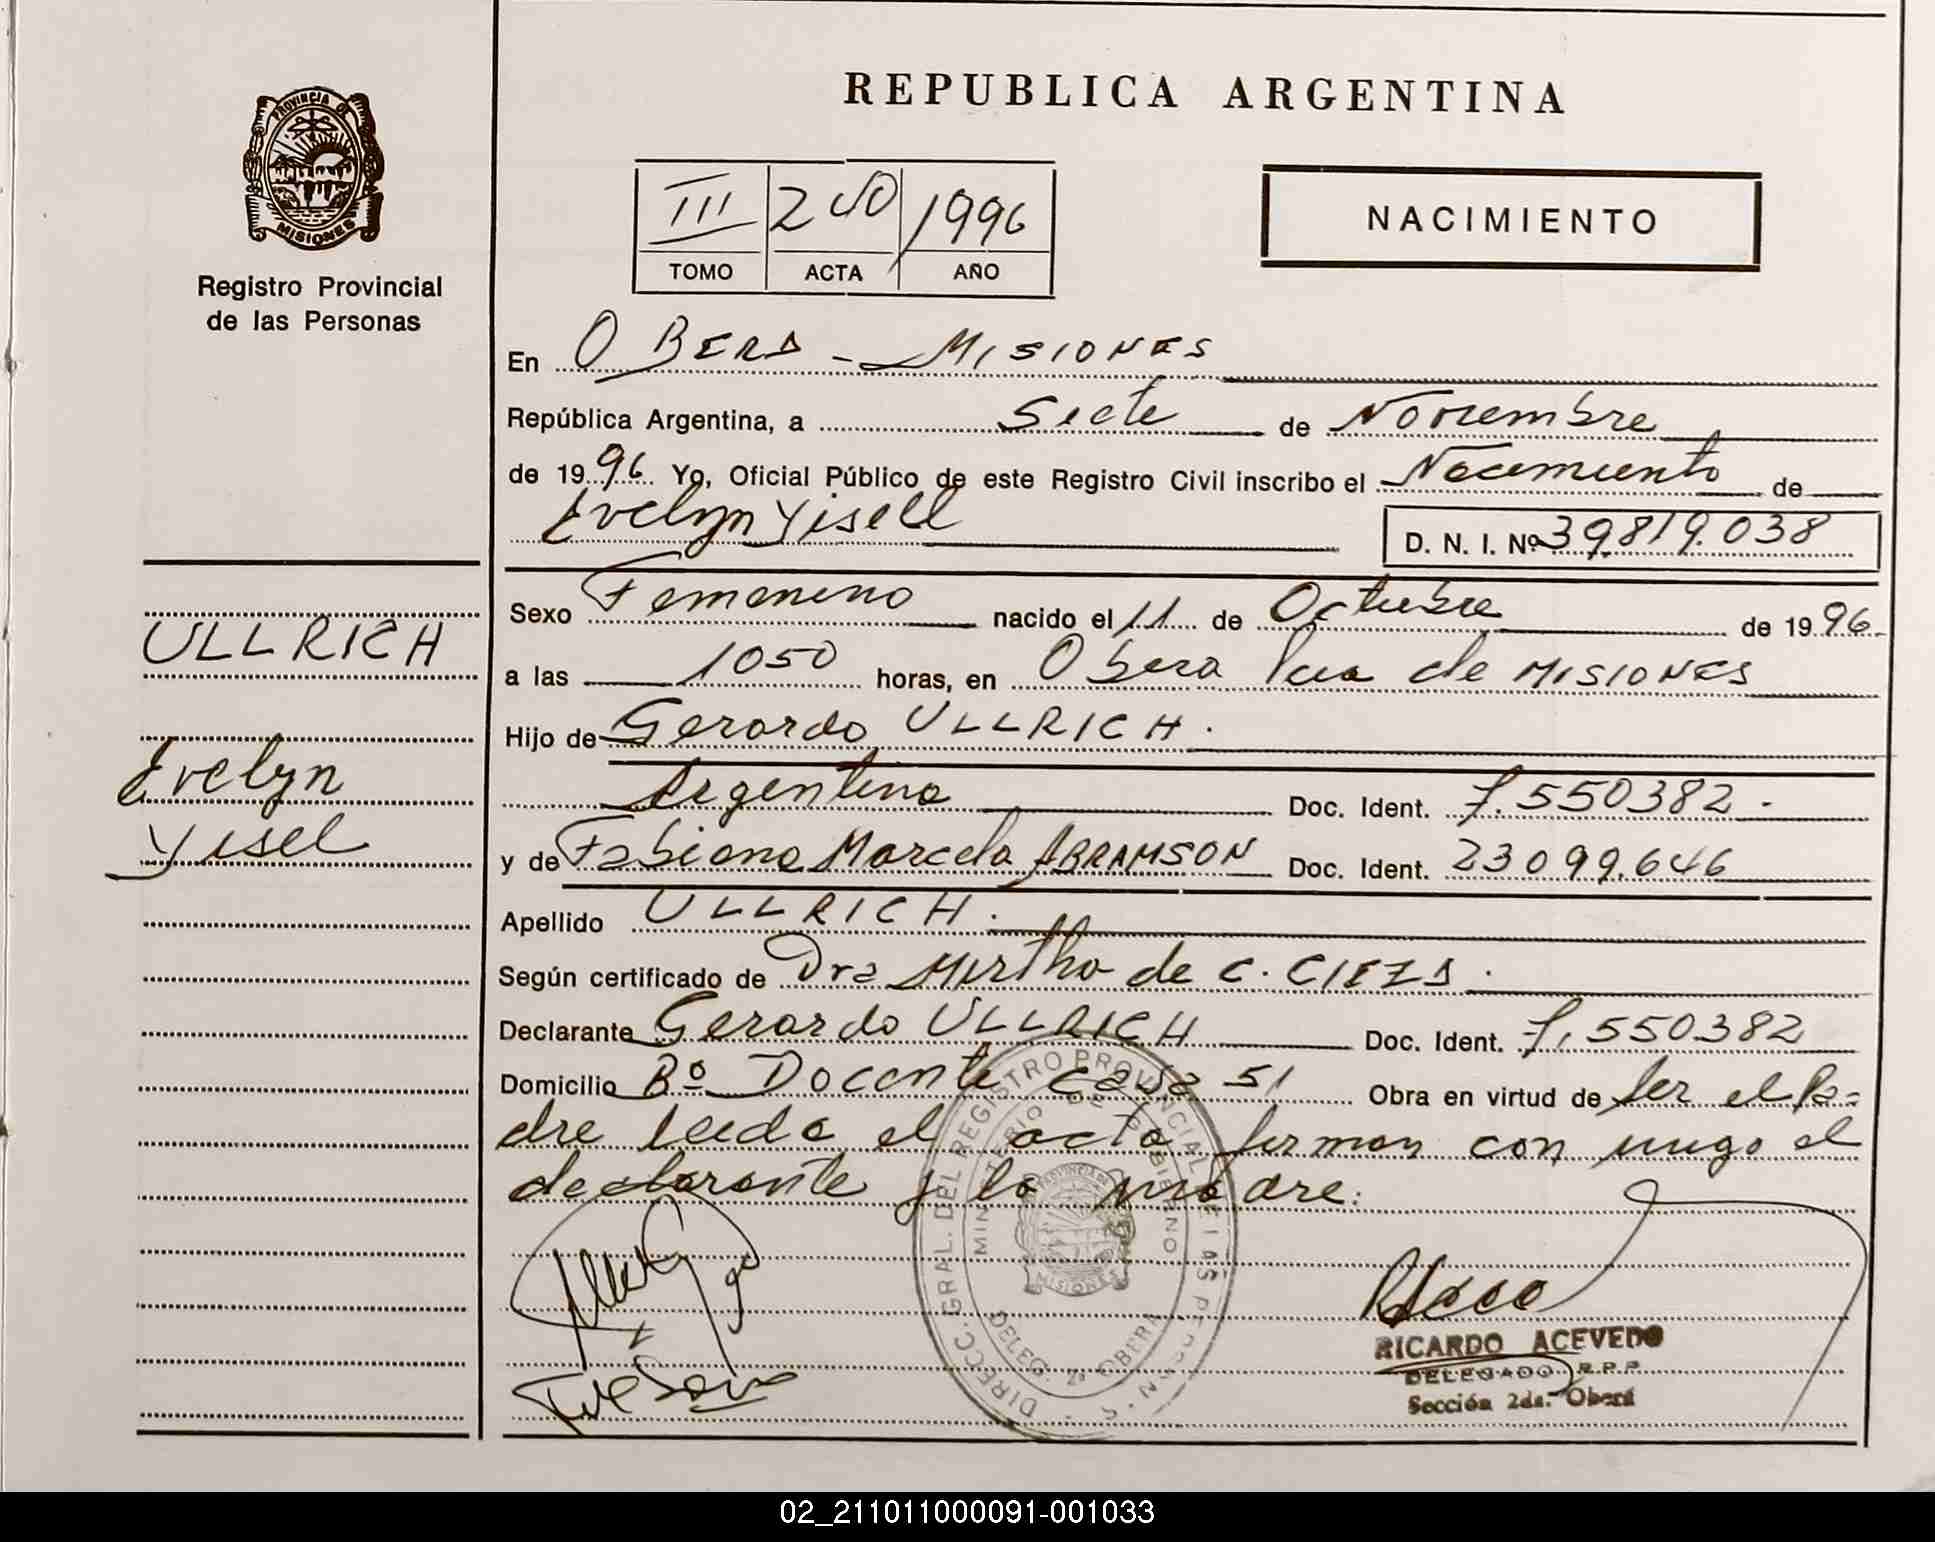 REPUBLICA ARGENTINA
PROVINCIA DE
MISIONES
Registro Provincial
de las Personas
III 1996
TOMO ACTA AÑO
NACIMIENTO
En OBERA - MISIONES
República Argentina, a Siete de Noviembre
de 1996 Yo, Oficial Público de este Registro Civil inscribo el Nacimiento de
Evelyn Yisell
D. N. I. Nº 39.819.038
Sexo Femenino nacido el 11 de Octubre de 1996
a las 1050 horas, en Obera Pcia de MISIONES
Hijo de Gerardo ULLRICH.
Argentino Doc. Ident. 7.550382.
y de Fabiana Marcela ABRAMSON Doc. Ident. 23099.646
Apellido ULLRICH.
Según certificado de Dra Mirtha de C. CIEZA.
Declarante Gerardo ULLRICH Doc. Ident. 7.550382
Domicilio Bº Docente casa 51 Obra en virtud de ser el Pa-
dre leida el acta firman con migo el
declarante y la madre.
ULLRICH
Evelyn
Yisel
DIRECC. GRAL. DEL REGISTRO PROVINCIAL DE LAS PERSONAS
MINISTERIO DE GOBIERNO
PROVINCIA DE
MISIONES
DELEG. 2ª OBERA
RICARDO ACEVEDO
DELEGADO R.P.P
Sección 2da. Oberá
02_211011000091-001033